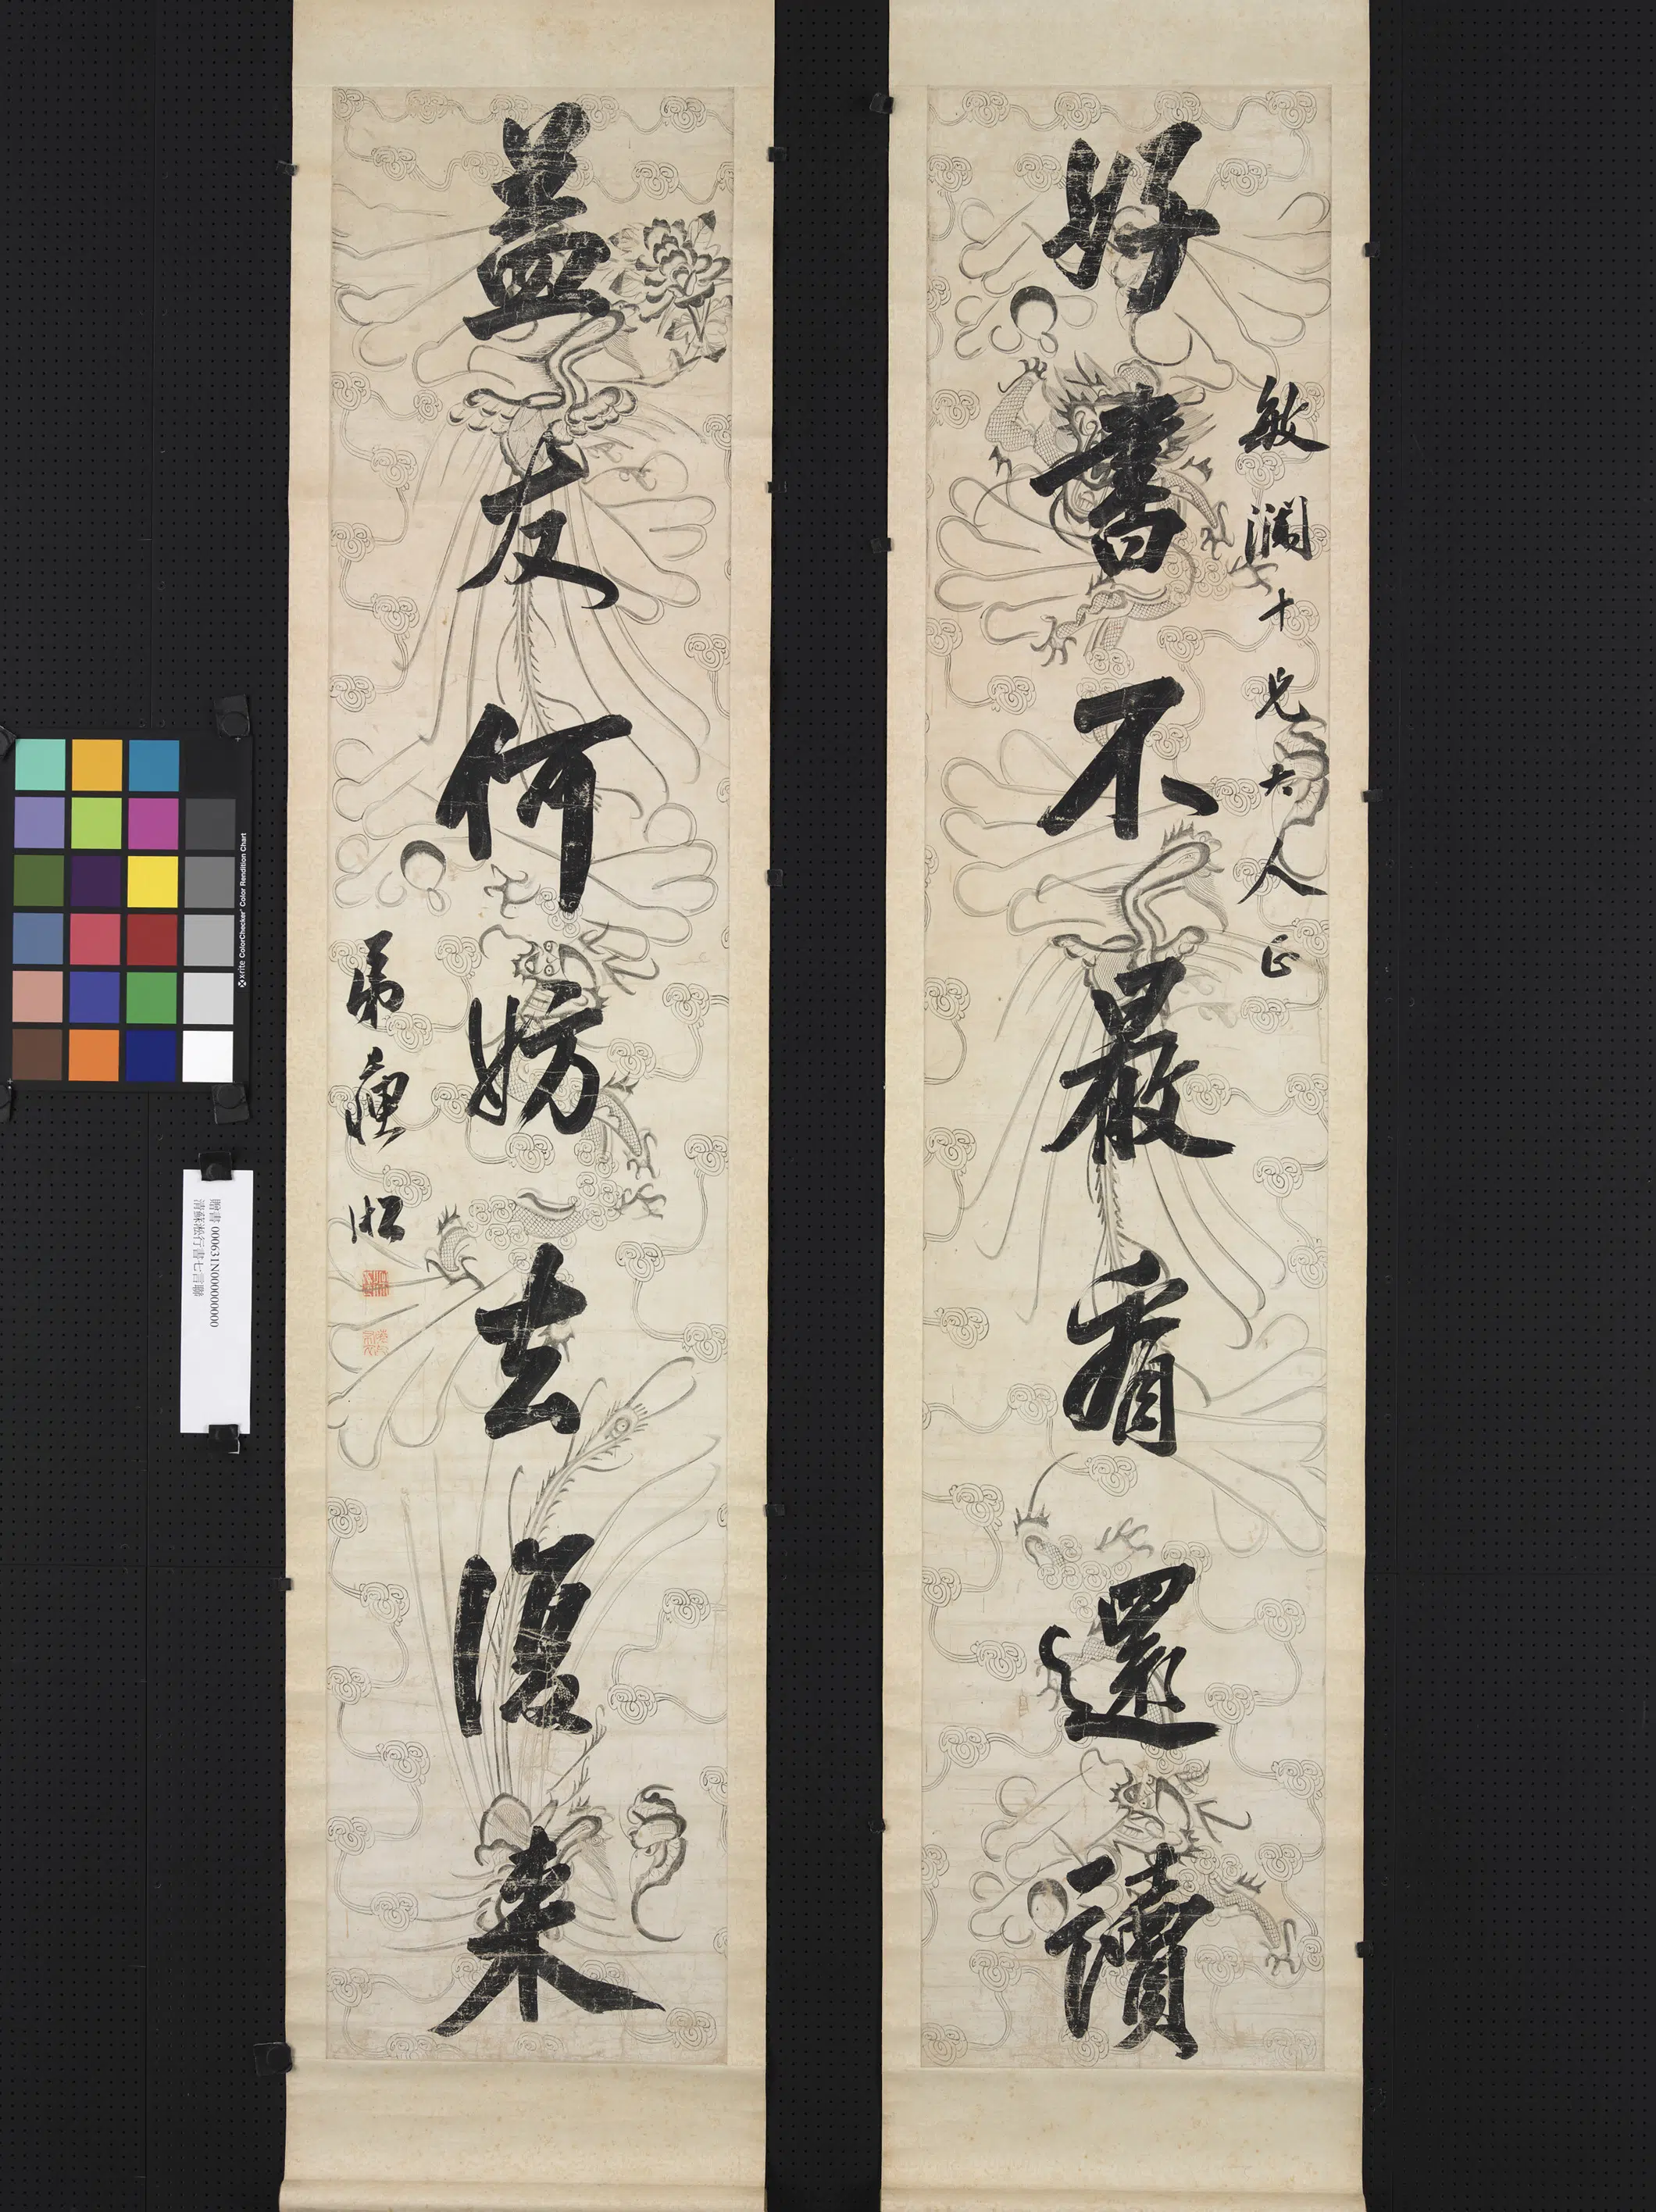 敏瀾十兄大人正
好書不厭看還讀
益友何妨去復來
弟 淞
贈書 000631N000000000
清蘇淞行書七言聯
x-rite ColorChecker Color Rendition Chart